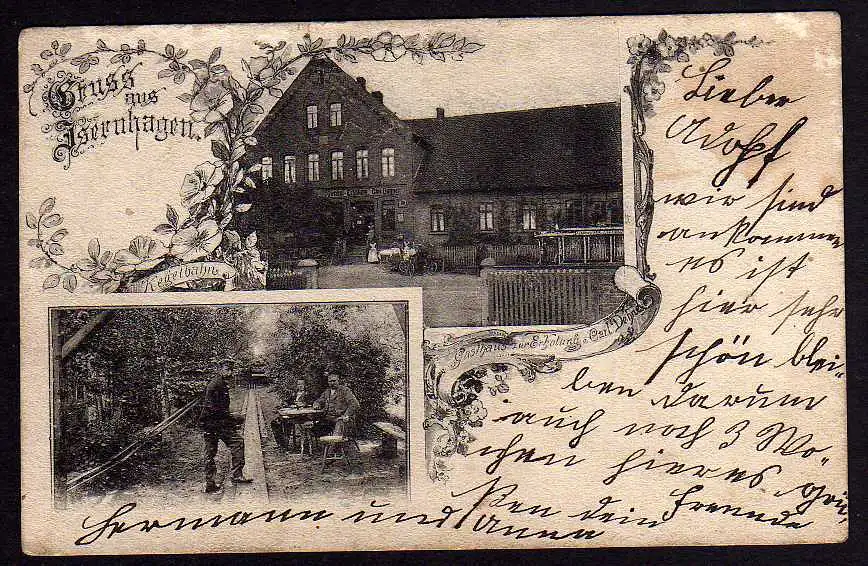 Gruss
aus
Isernhagen.
Kegelbahn
Gasthaus zur Erholung v. Carl
Lieber
Adolf
wir sind
ankommen
es ist
hier sehr
schön blei-
ben darum
auch noch 3 Wo-
chen hier es grü-
ßen dein Freunde
Hermann und Anna